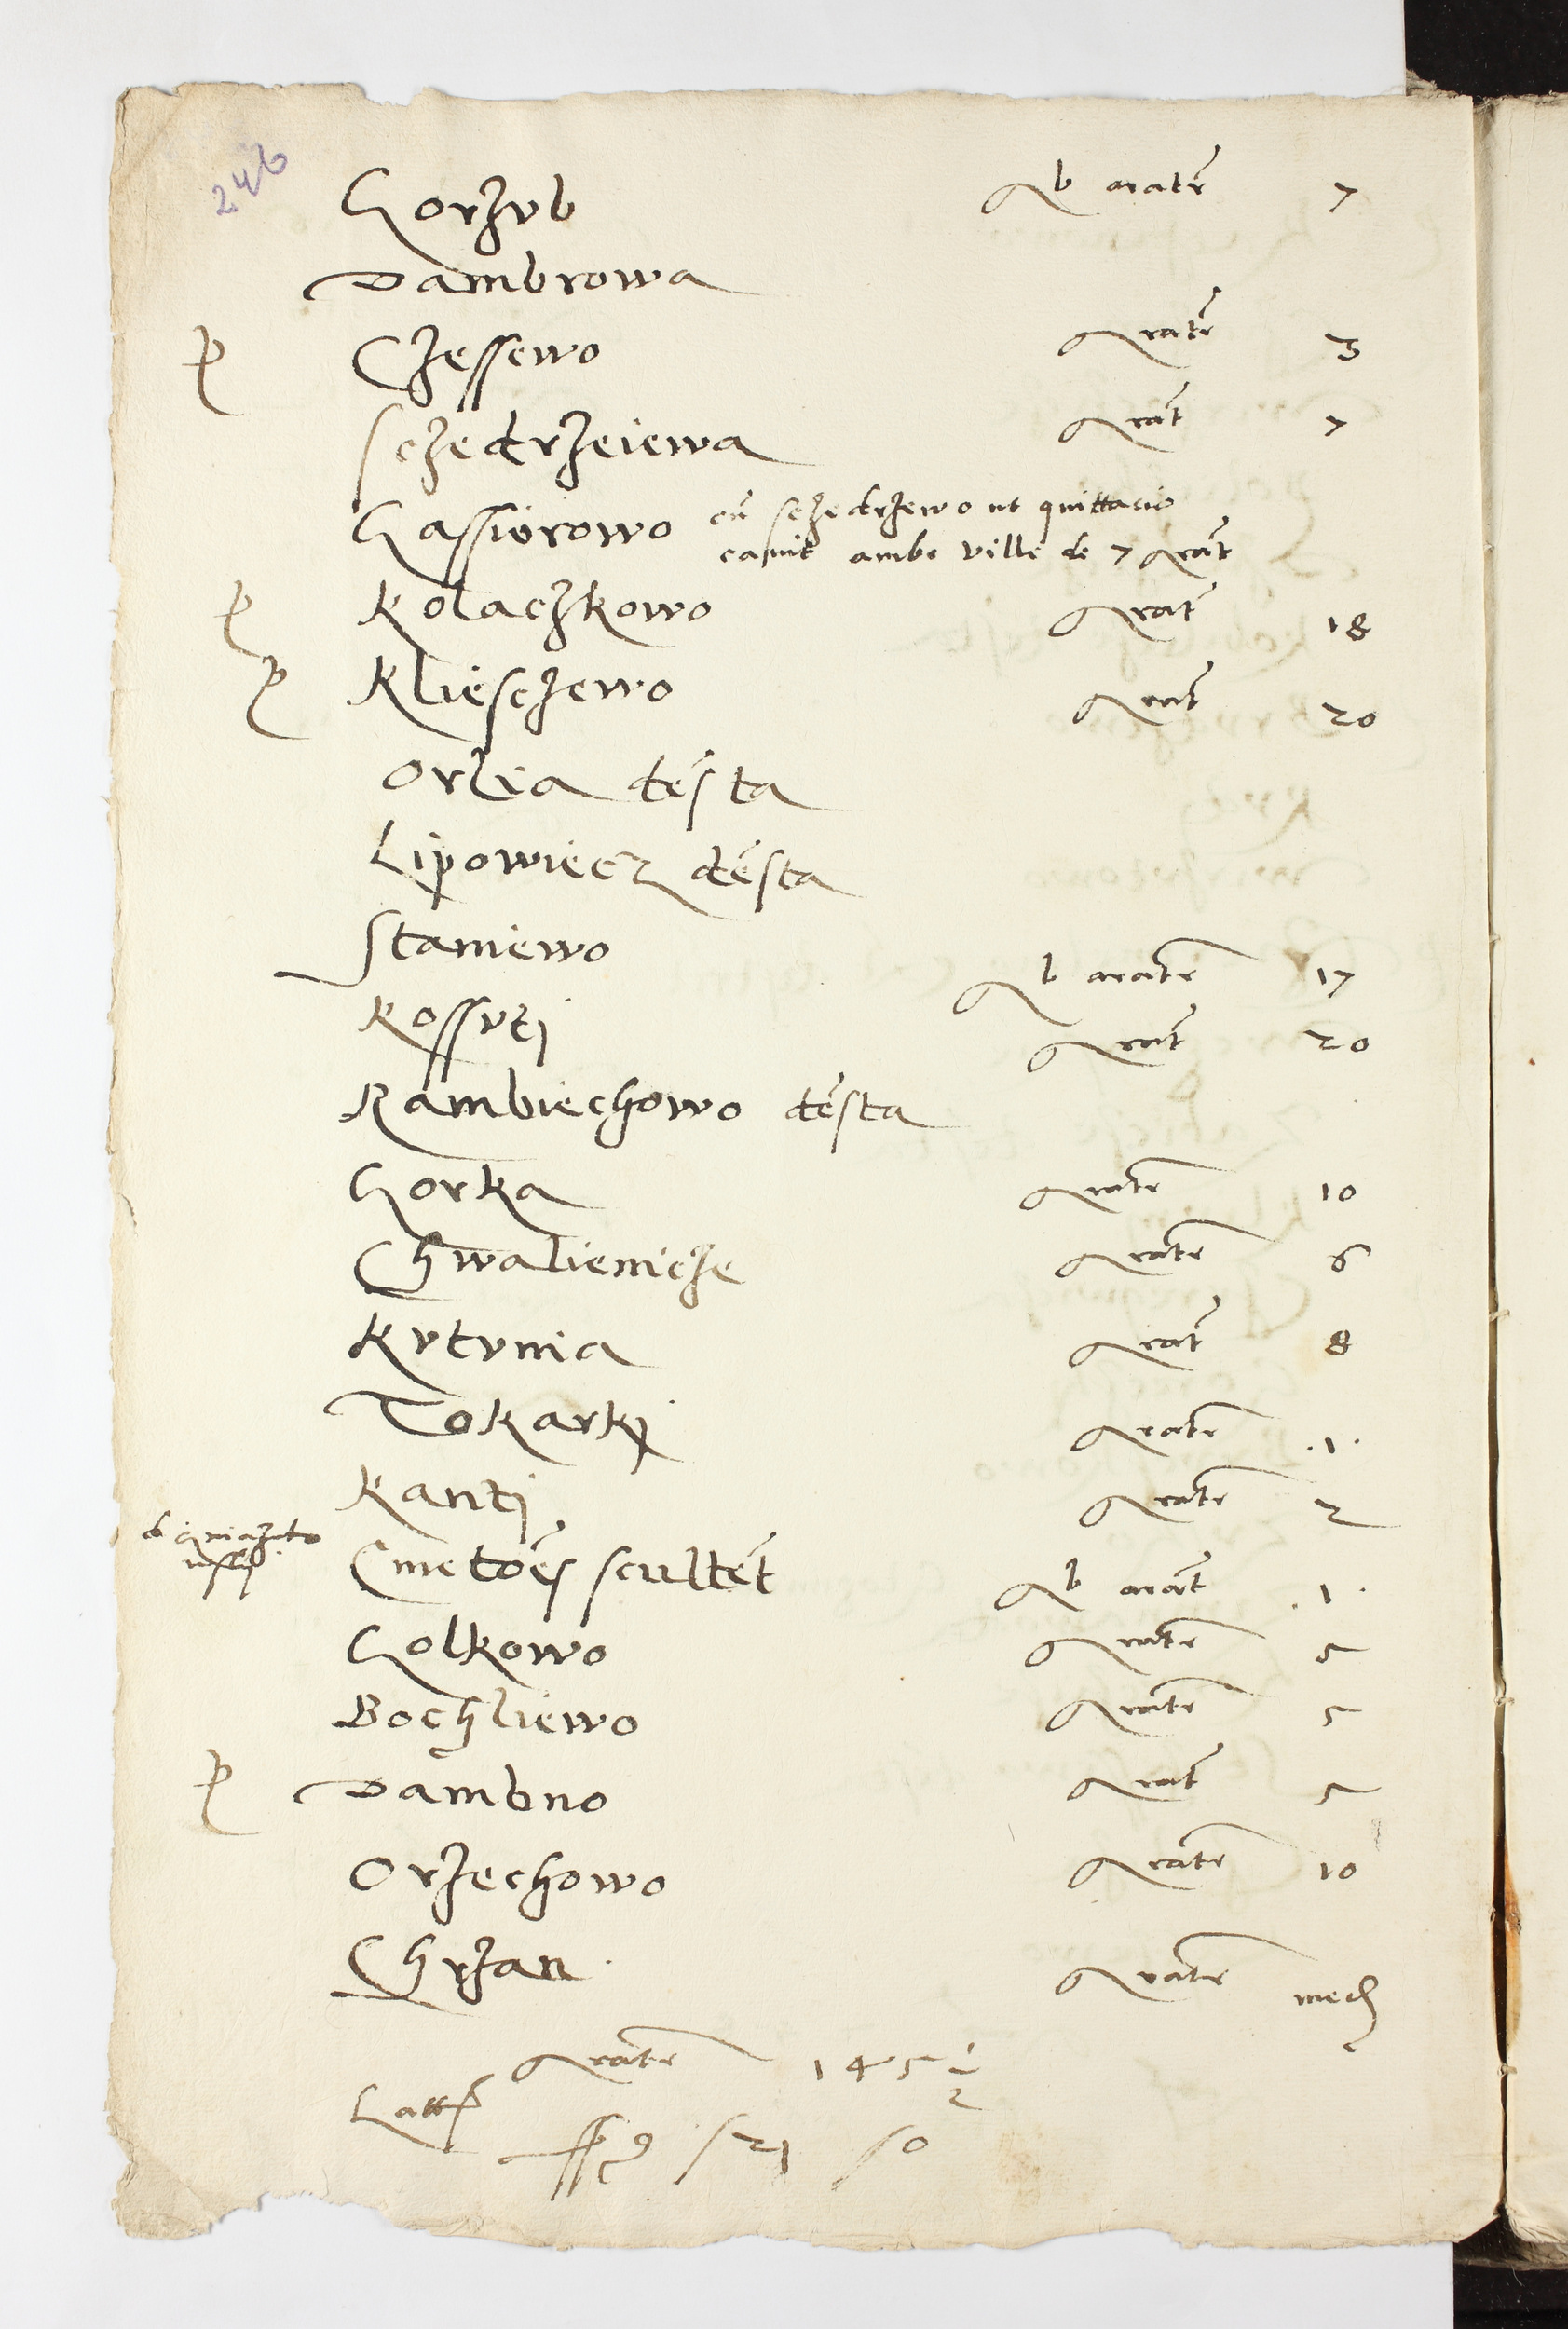 246
Gorzvb Ab aratr 7
Dambrowa
p Czessewo Aratr 3
Sczedrzeiewa Arat 7
Gassiorowo cu Sczedrzewo ut quittacio
canit ambe ville de 7 Arat
p Kolaczkowo Arat 18
p Klieschewo Arat 20
Orlia desta
Lipowiecz desta
Staniewo Ab aratr 17
Kossuti Arat 20
Rambiechowo desta
Gorka Aratr 10
Chwalienicze Aratr 6
Kutunia Arat 8
Tokarki Aratr .1.
Kanti Aratr 2
Cmetoes scultet Ab arat .1.
Golkowo Aratr 5
Bochliewo Aratr 5
p Dambno Arat 5
Orzechowo Aratr 10
Chrzan. Aratr med
Aratr 145 1/2